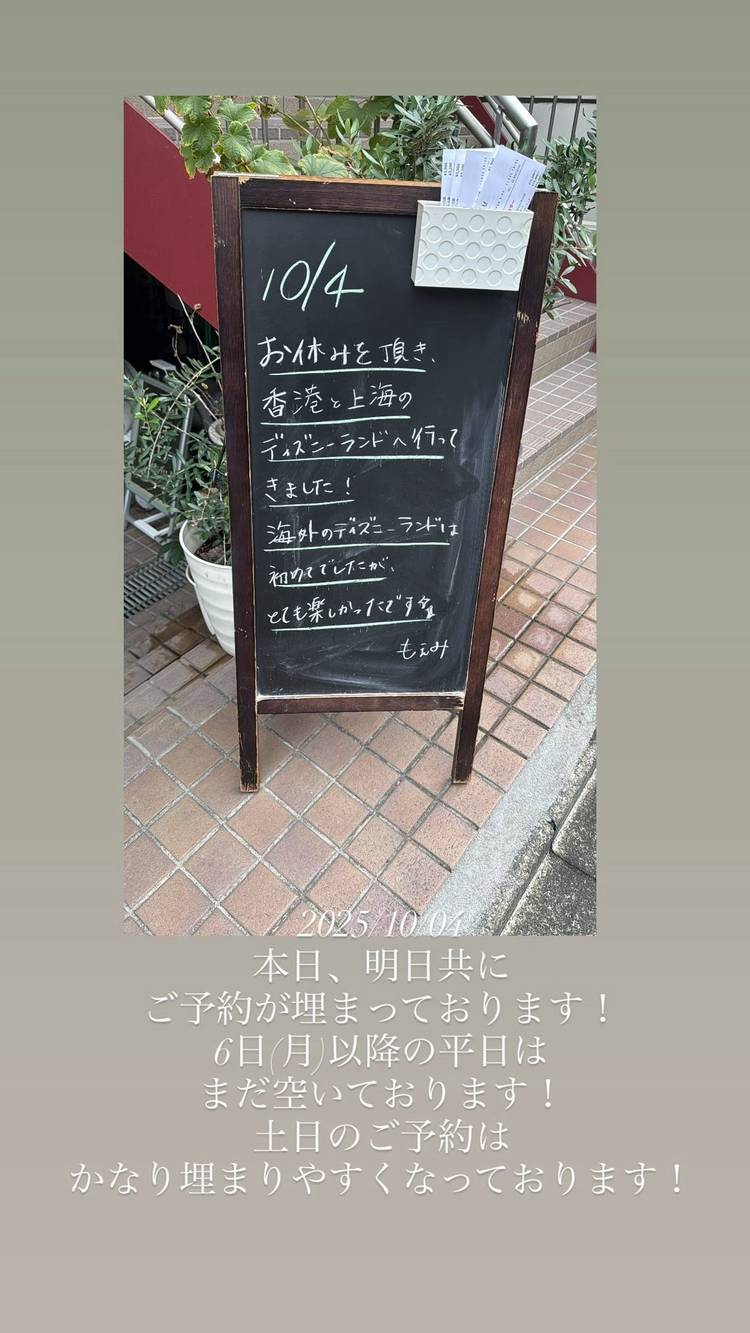 10/4
お休みを頂き、
香港と上海の
ディズニーランドへ行って
きました！
海外のディズニーランドは
初めてでしたが、
とても楽しかったです
もえみ
2025/10/04
本日、明日共に
ご予約が埋まっております！
6日(月)以降の平日は
まだ空いております！
土日のご予約は
かなり埋まりやすくなっております！